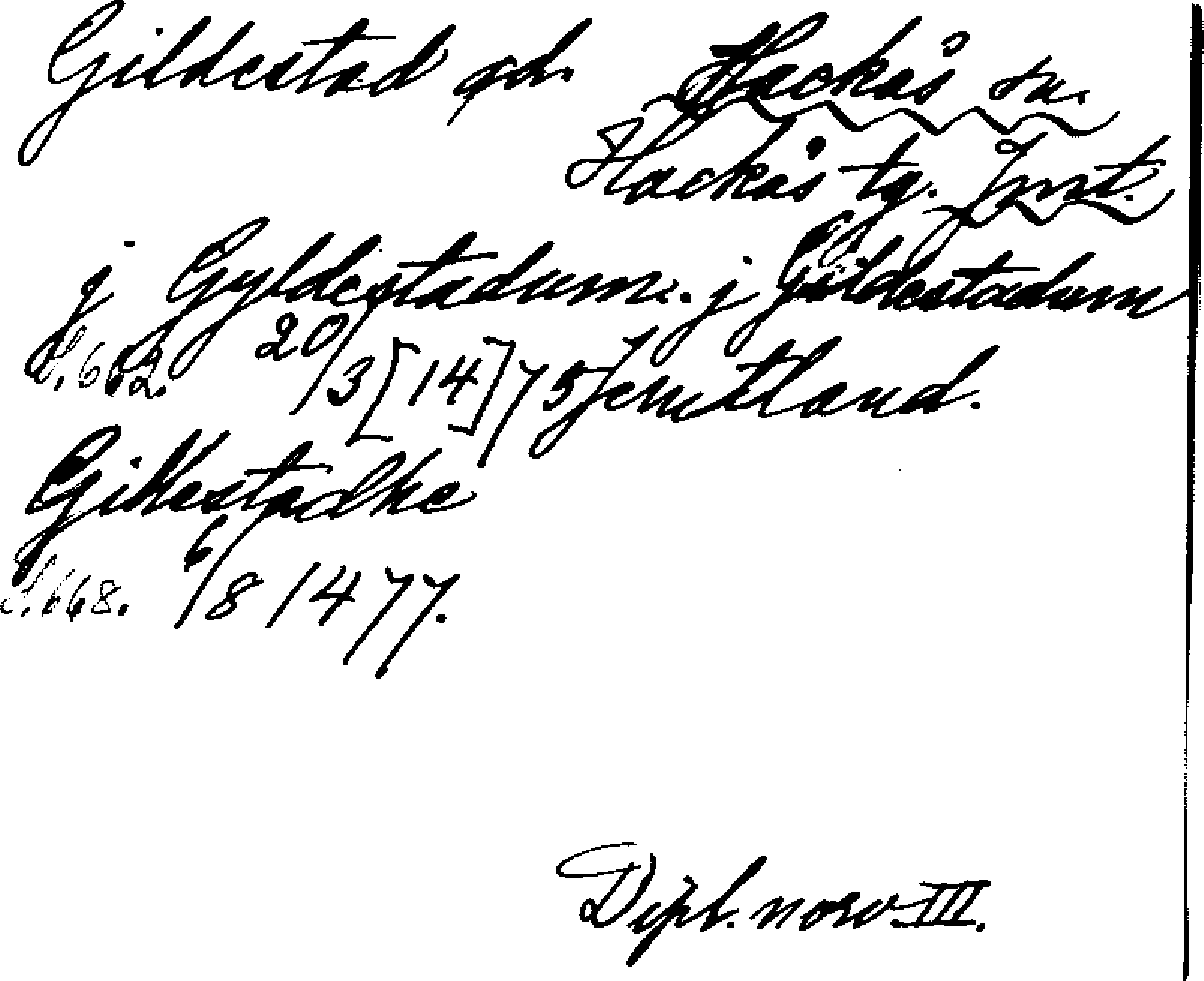 Gildestad gd. Hackås sn.
Hackås tg. Jmt.
j Gyldestadum. j Gildestadum
S. 662. 20/3 [14]75 Jemtland.
Gillestadhe
S. 668. 6/8 1477.
Dipl. norv. III.